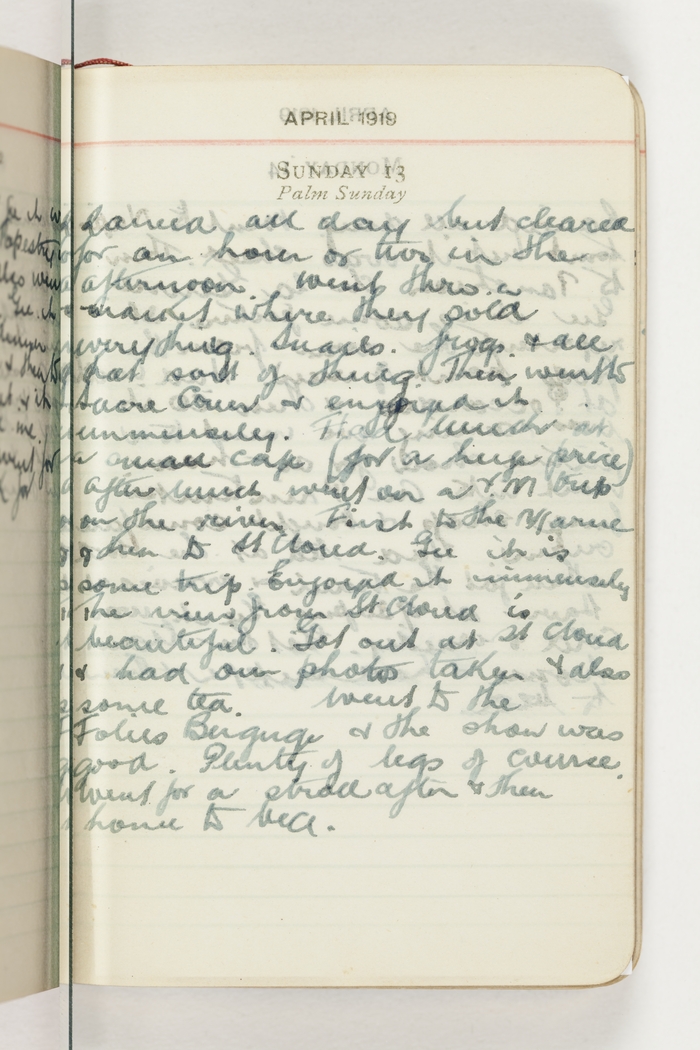 APRIL 1919
SUNDAY 13
Palm Sunday
Rained all day but cleared
for an hour or two in the
afternoon. Went thro. a
market where they sold
everything. Snails. frogs. & all
that sort of thing. Then went to
Sacre Couer & enjoyed it
immensely. Had lunch at
a small cafe (for a huge price)
after lunch went on a trip
on the river. First to the Marne
& then to St Cloud. Gee it is
some trip. Enjoyed it immensely
The view from St Cloud is
beautiful. Got out at St Cloud
& had our photos taken & also
some tea. Went to the
Folies Berguge & the show was
good. Plenty of legs of course.
Went for a stroll after & then
home to bed.